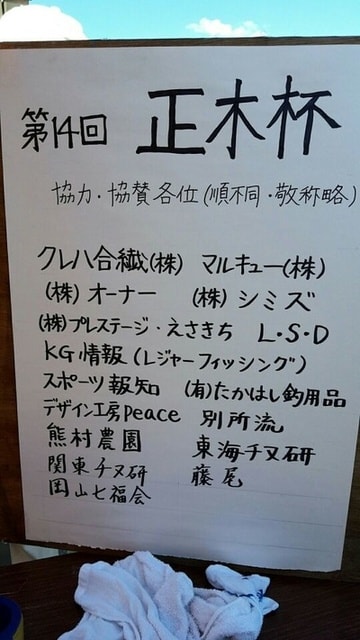 第14回 正木杯
協力・協賛各位(順不同・敬称略)
クレハ合繊(株) マルキュー(株)
(株)オーナー (株)シミズ
(株)プレステージ・えさきち L・S・D
KG情報(レジャーフィッシング)
スポーツ報知 (有)たかはし釣用品
デザイン工房peace 別所流
熊村農園 東海チヌ研
関東チヌ研 藤尾
岡山七福会